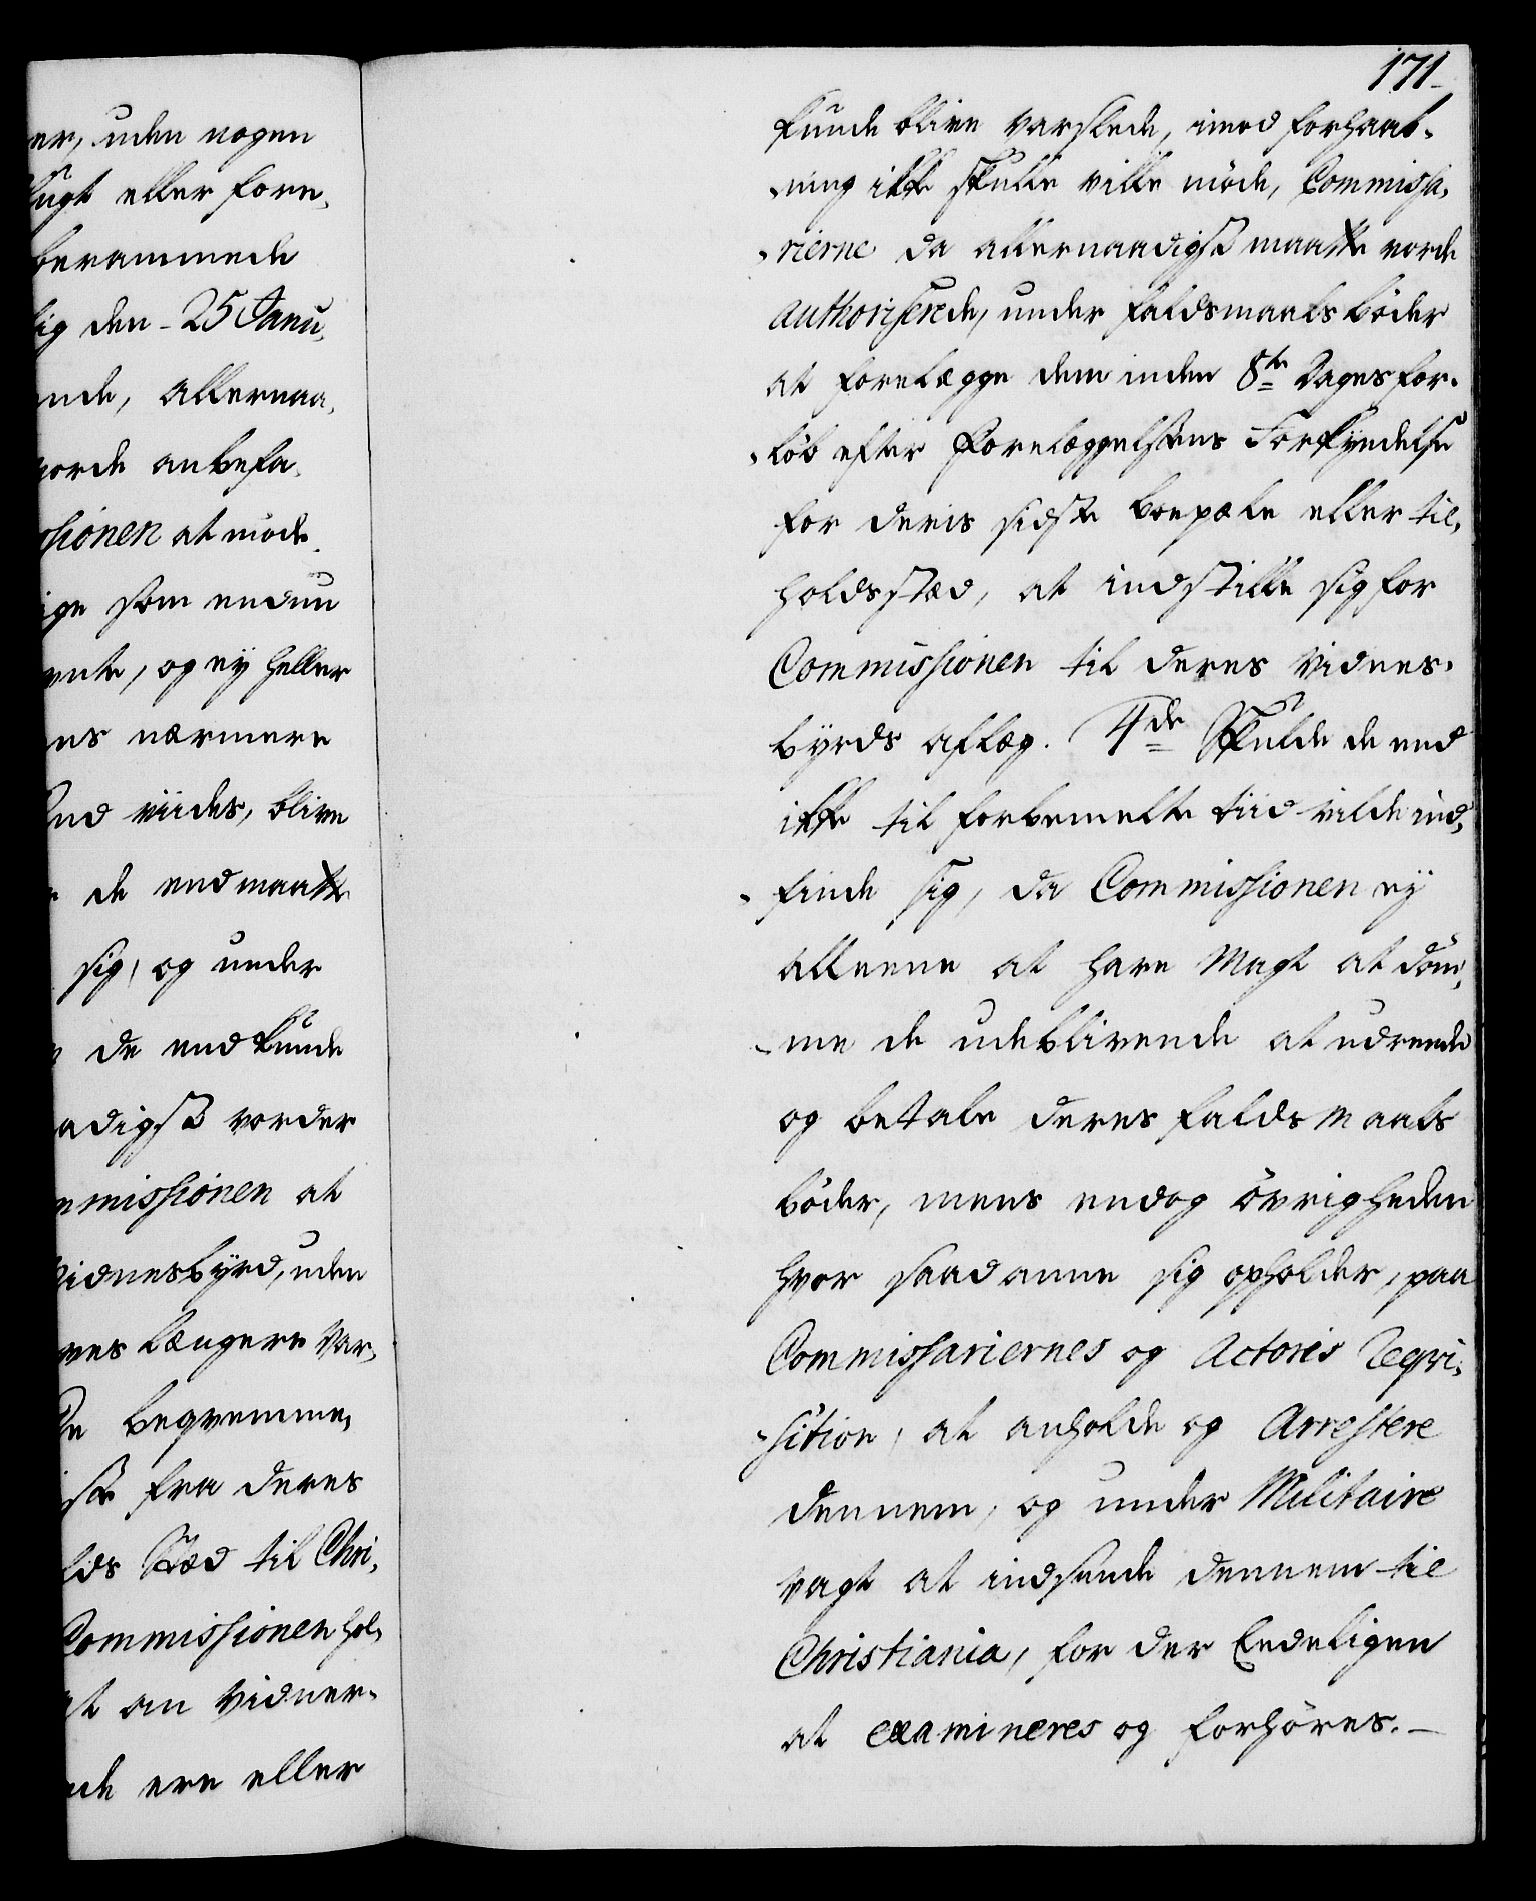 er, uden nogen
flugt eller fore,
berammede
lig den - 25 Janu,
ende, allernaa,
vorde anbefa,
ssionen at møde
ige som endnu
ente, og ey heller
nes nærmere
End viides, blive
de end maatte
sig, og under
de end kunde
adigst vorder
mmissionen at
Vidnesbyrd, uden
res længere Var,
De beqvemme,
ste fra deres
lds Stæd til Chri,
Commissionen hol,
at an Vidner,
nde ere eller
171.
kunde blive varslede, imod forhaab,
,ning ikke skulle ville møde, Commissa,
,rierne da allernaadigst maatte vorde
authoriserede, under faldsmaals bøder
at forelægge dem inden 8te Dages for,
,løb efter Forelæggelsens Forkyndelse
for deris sidste boepæle eller til,
holdsstæd, at indstille sig for
Commissionen til deres Vidnes,
byrds aflæg. 4de Skulde de end
ikke til forbemelte tiid vilde ind,
,finde sig, da Commissionen ey
alleene at have Magt at døm,
,me de udeblivende at udreede
og betale deres faldsmaals
bøder, mens endog øvrigheden
hvor saadanne sig opholder, paa
Commissariernes og Actoris Reqvi,
,sition, at anholde og Arrestere
dennem, og under Militaire
vagt at indsende dennem til
Christiania, for der Endeligen
at examineres og forhøres. —